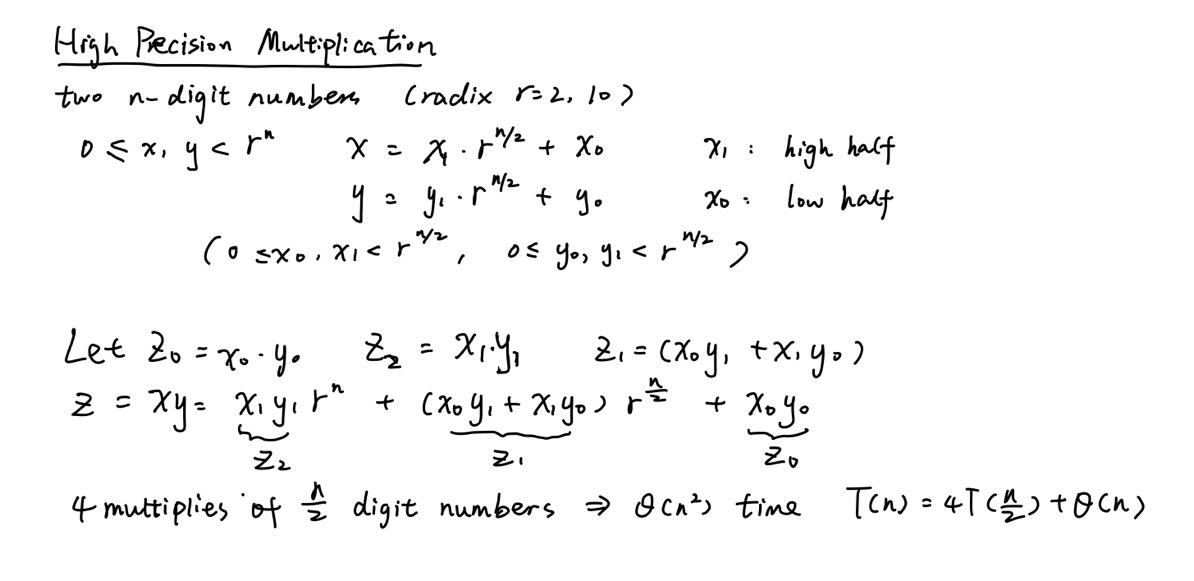 High Precision Multiplication
two n-digit numbers (radix r=2, 10)
0 ≤ x, y < r^n x = x₁ · r^{n/2} + x₀ x₁ : high half
y = y₁ · r^{n/2} + y₀ x₀ : low half
(0 ≤ x₀, x₁ < r^{n/2}, 0 ≤ y₀, y₁ < r^{n/2})
Let z₀ = x₀ · y₀ z₂ = x₁·y₁ z₁ = (x₀y₁ + x₁y₀)
z = xy = x₁y₁ r^n + (x₀y₁ + x₁y₀) r^{n/2} + x₀y₀
z₂ z₁ z₀
4 multiplies of n/2 digit numbers ⇒ θ(n²) time T(n) = 4T(n/2) + θ(n)